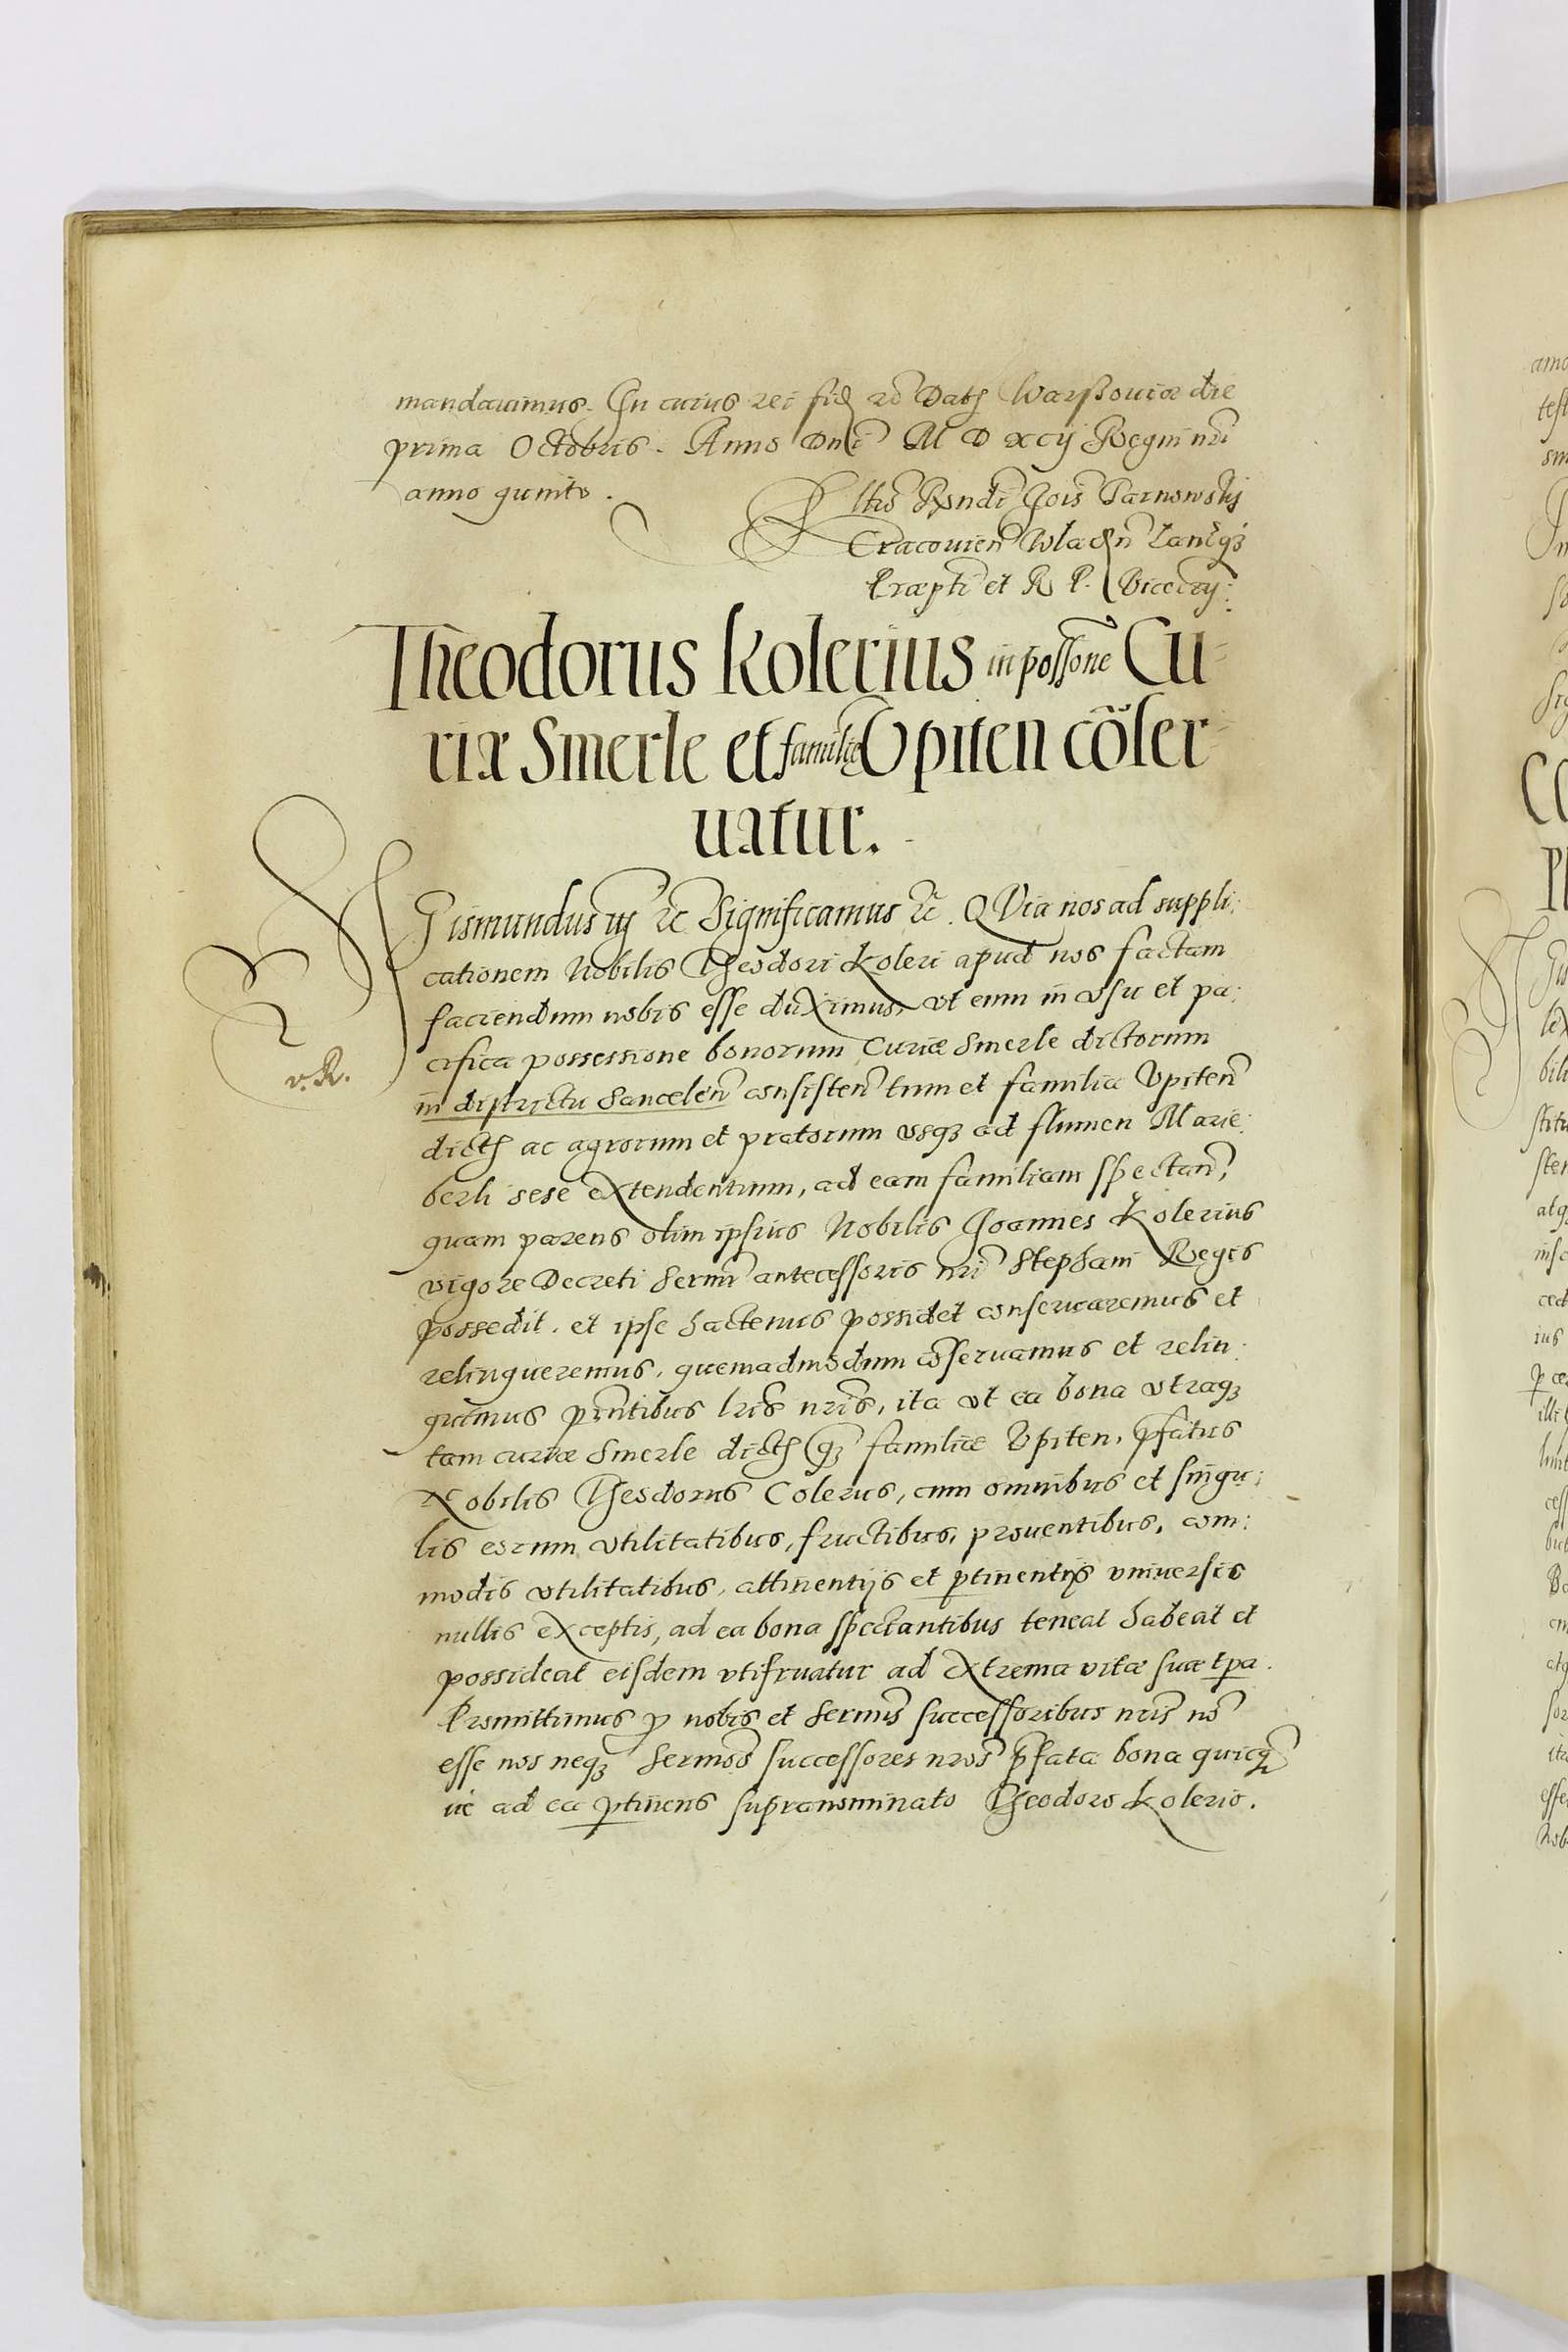 mandauimus. In cuius rei fid rc̃ Dat Warssouiæ die
prima Octobris. Anno Dnĩ M D xcij Regni nrĩ
anno quinto.
Rltio Rndĩ Jois̃ Tarnowskij
Cracouien̄ Wladn̄ Lanĉq3
Præpti et R P. Vicecry:
Theodorus Kolerius in possone Cu-
riæ Smerle et familiæ Vpiten cõser-
uatur.
Sigismundus iij rc̃ Significamus rc̃. QVia nos ad suppli:
cationem Nobilis Theodori Koleri apud nos factam
faciendum nobis esse duximus, vt eum in vsu et pa:
cifica possessione bonorum Curiæ Smerle dictorum
v. R.
in districtu Sancelen̄ consisten̄ tum et familiæ Vpiten̄
dict ac agrorum et pratorum vsq3 ad flumen Marie:
berli sese extendentium, ad eam familiam spectan̄,
quam parens olim ipsius Nobilis Joannes Kolerius
vigore Decreti Sermĩ antecessoris nrĩ Stephani Regis
possedit. et ipse hactenus possidet conseruaremus et
relinqueremus. quemadmodum cõseruamus et relin:
quimus pn̄tibus lris̃ nris̃, ita vt ea bona vtraq3
tam curiæ Smerle dict q3 familiæ Vpiten. p̄fatus
Nobilis Theodorus Colerus, cum omnibus et singu:
lis eorum vtilitatibus, fructibus, prouentibus, com:
modis vtilitatibus, attinentijs et ptinentijs vniuersis
nullis exceptis, ad ea bona spectantibus teneat habeat et
possideat eisdem vtifruatur ad extrema vitæ suæ tpa.
Promittimus p nobis et Sermis̃ successoribus nris̃ nõ
esse nos neq3 Sermos̃ successores nros̃ p̄fata bona quicq̃
ue ad ea ptinens supranominato Theodoro Kolerio.